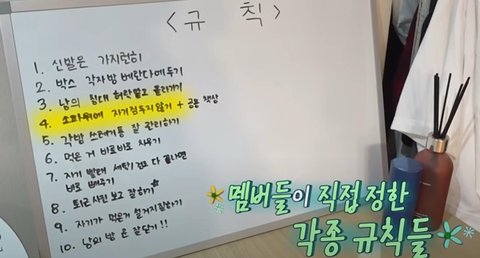 <규칙>
1. 신발은 가지런히
2. 박스 각자방 베란다에 두기
3. 남의 침대 허락맡고 올라가기
4. 소파위에 자기짐두지않기 + 공용 책상
5. 각방 쓰레기통 잘 관리하기
6. 먹은 거 바로바로 치우기
7. 자기 빨래 세탁/건조 다 끝나면
바로 빼주기
8. 퇴근 사진 보고 잘하기
9. 자기가 먹은거 설거지잘하기
10. 남의 방 문 잘닫기!!
멤버들이 직접 정한
각종 규칙들